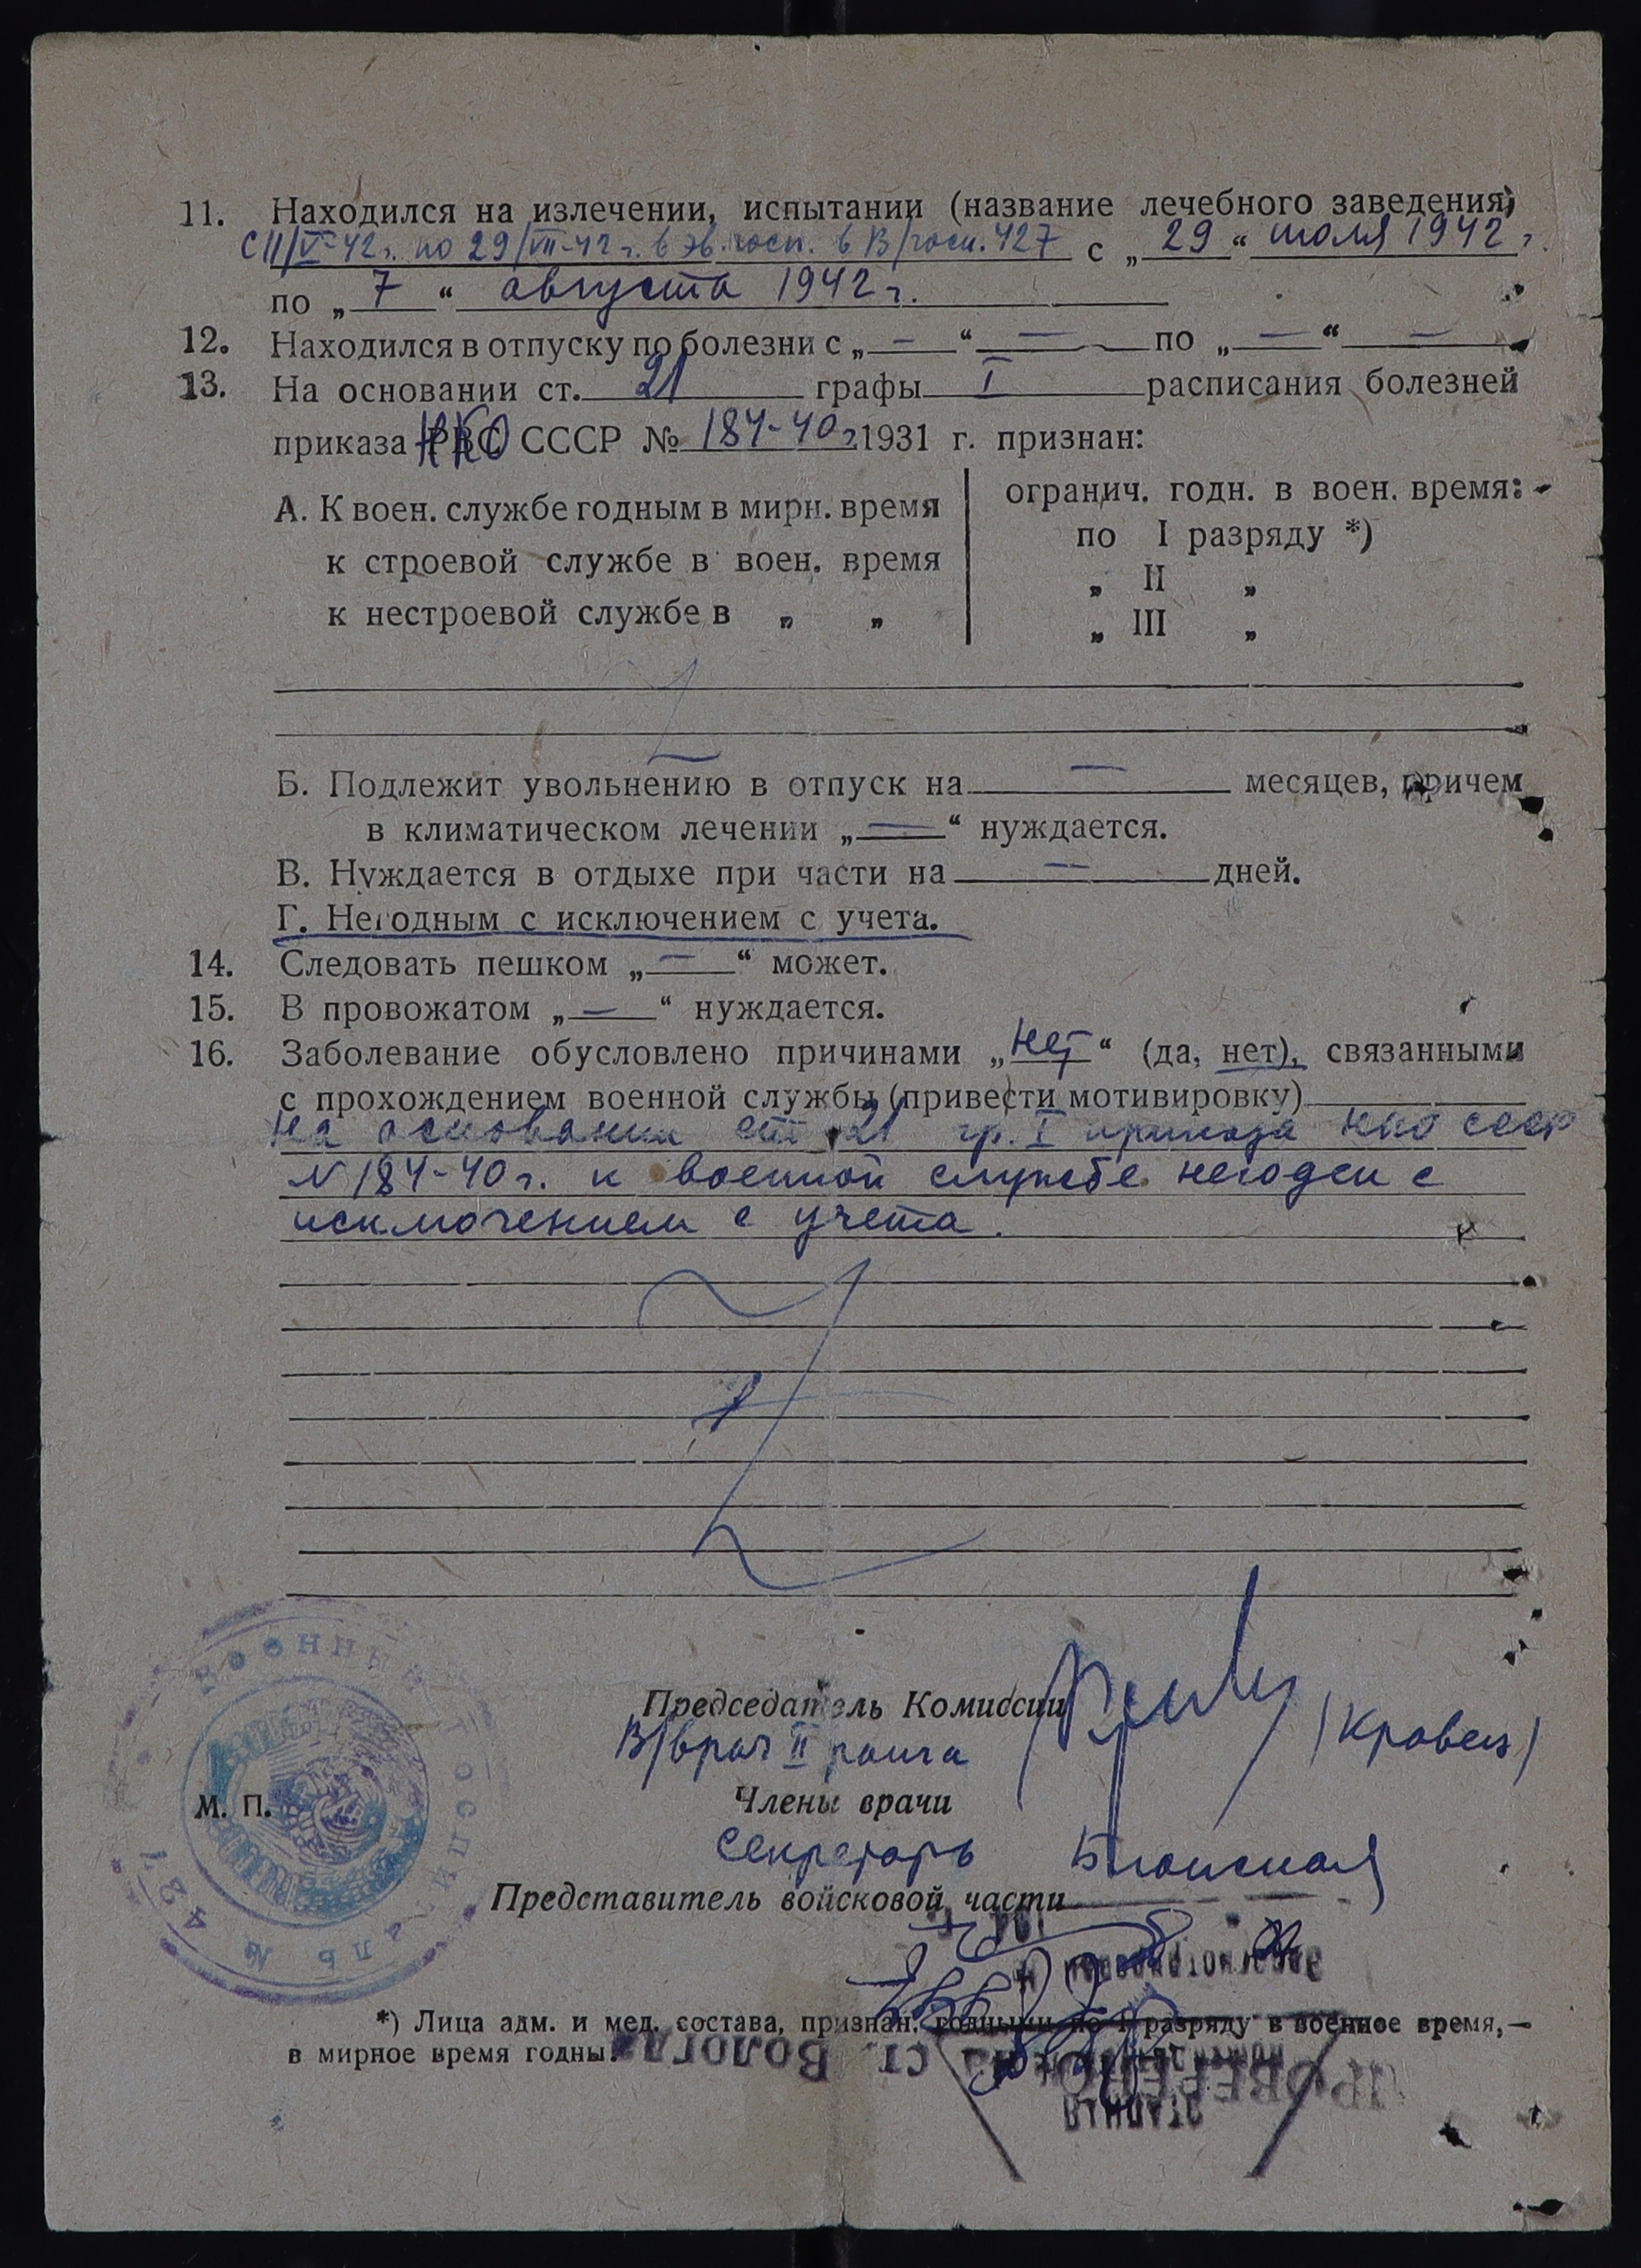 11. Находился на излечении, испытании (название лечебного заведения)
С 11/V-42г. по 29/VII-42г. в эв. госп. в В/госп. 427 с „29“ июля 1942 г.
по „7“ августа 1942 г.
12. Находился в отпуску по болезни с „—“ — по „—“ —
13. На основании ст. 21 графы I расписания болезней
приказа НКО СССР № 184-40г 1931 г. признан:
А. К воен. службе годным в мирн. время
к строевой службе в воен. время
к нестроевой службе в „ „
огранич. годн. в воен. время:
по I разряду *)
„ II „
„ III „
Б. Подлежит увольнению в отпуск на — месяцев, причем
в климатическом лечении „—“ нуждается.
В. Нуждается в отдыхе при части на — дней.
Г. Негодным с исключением с учета.
14. Следовать пешком „—“ может.
15. В провожатом „—“ нуждается.
16. Заболевание обусловлено причинами „Нет“ (да, нет), связанными
с прохождением военной службы (привести мотивировку)
На основании ст 21 гр. I приказа НКО СССР
N 184-40г. к военной службе негоден с
исключением с учета.
Председатель Комиссии
В/врач II ранга (Кровец)
Члены врачи
Секретарь
Представитель войсковой части
М. П.
Военный госпиталь № 427
*) Лица адм. и мед. состава, признан. годными по I разряду в военное время, —
в мирное время годны.
ст. Вологда
ПРОВЕРЕНО